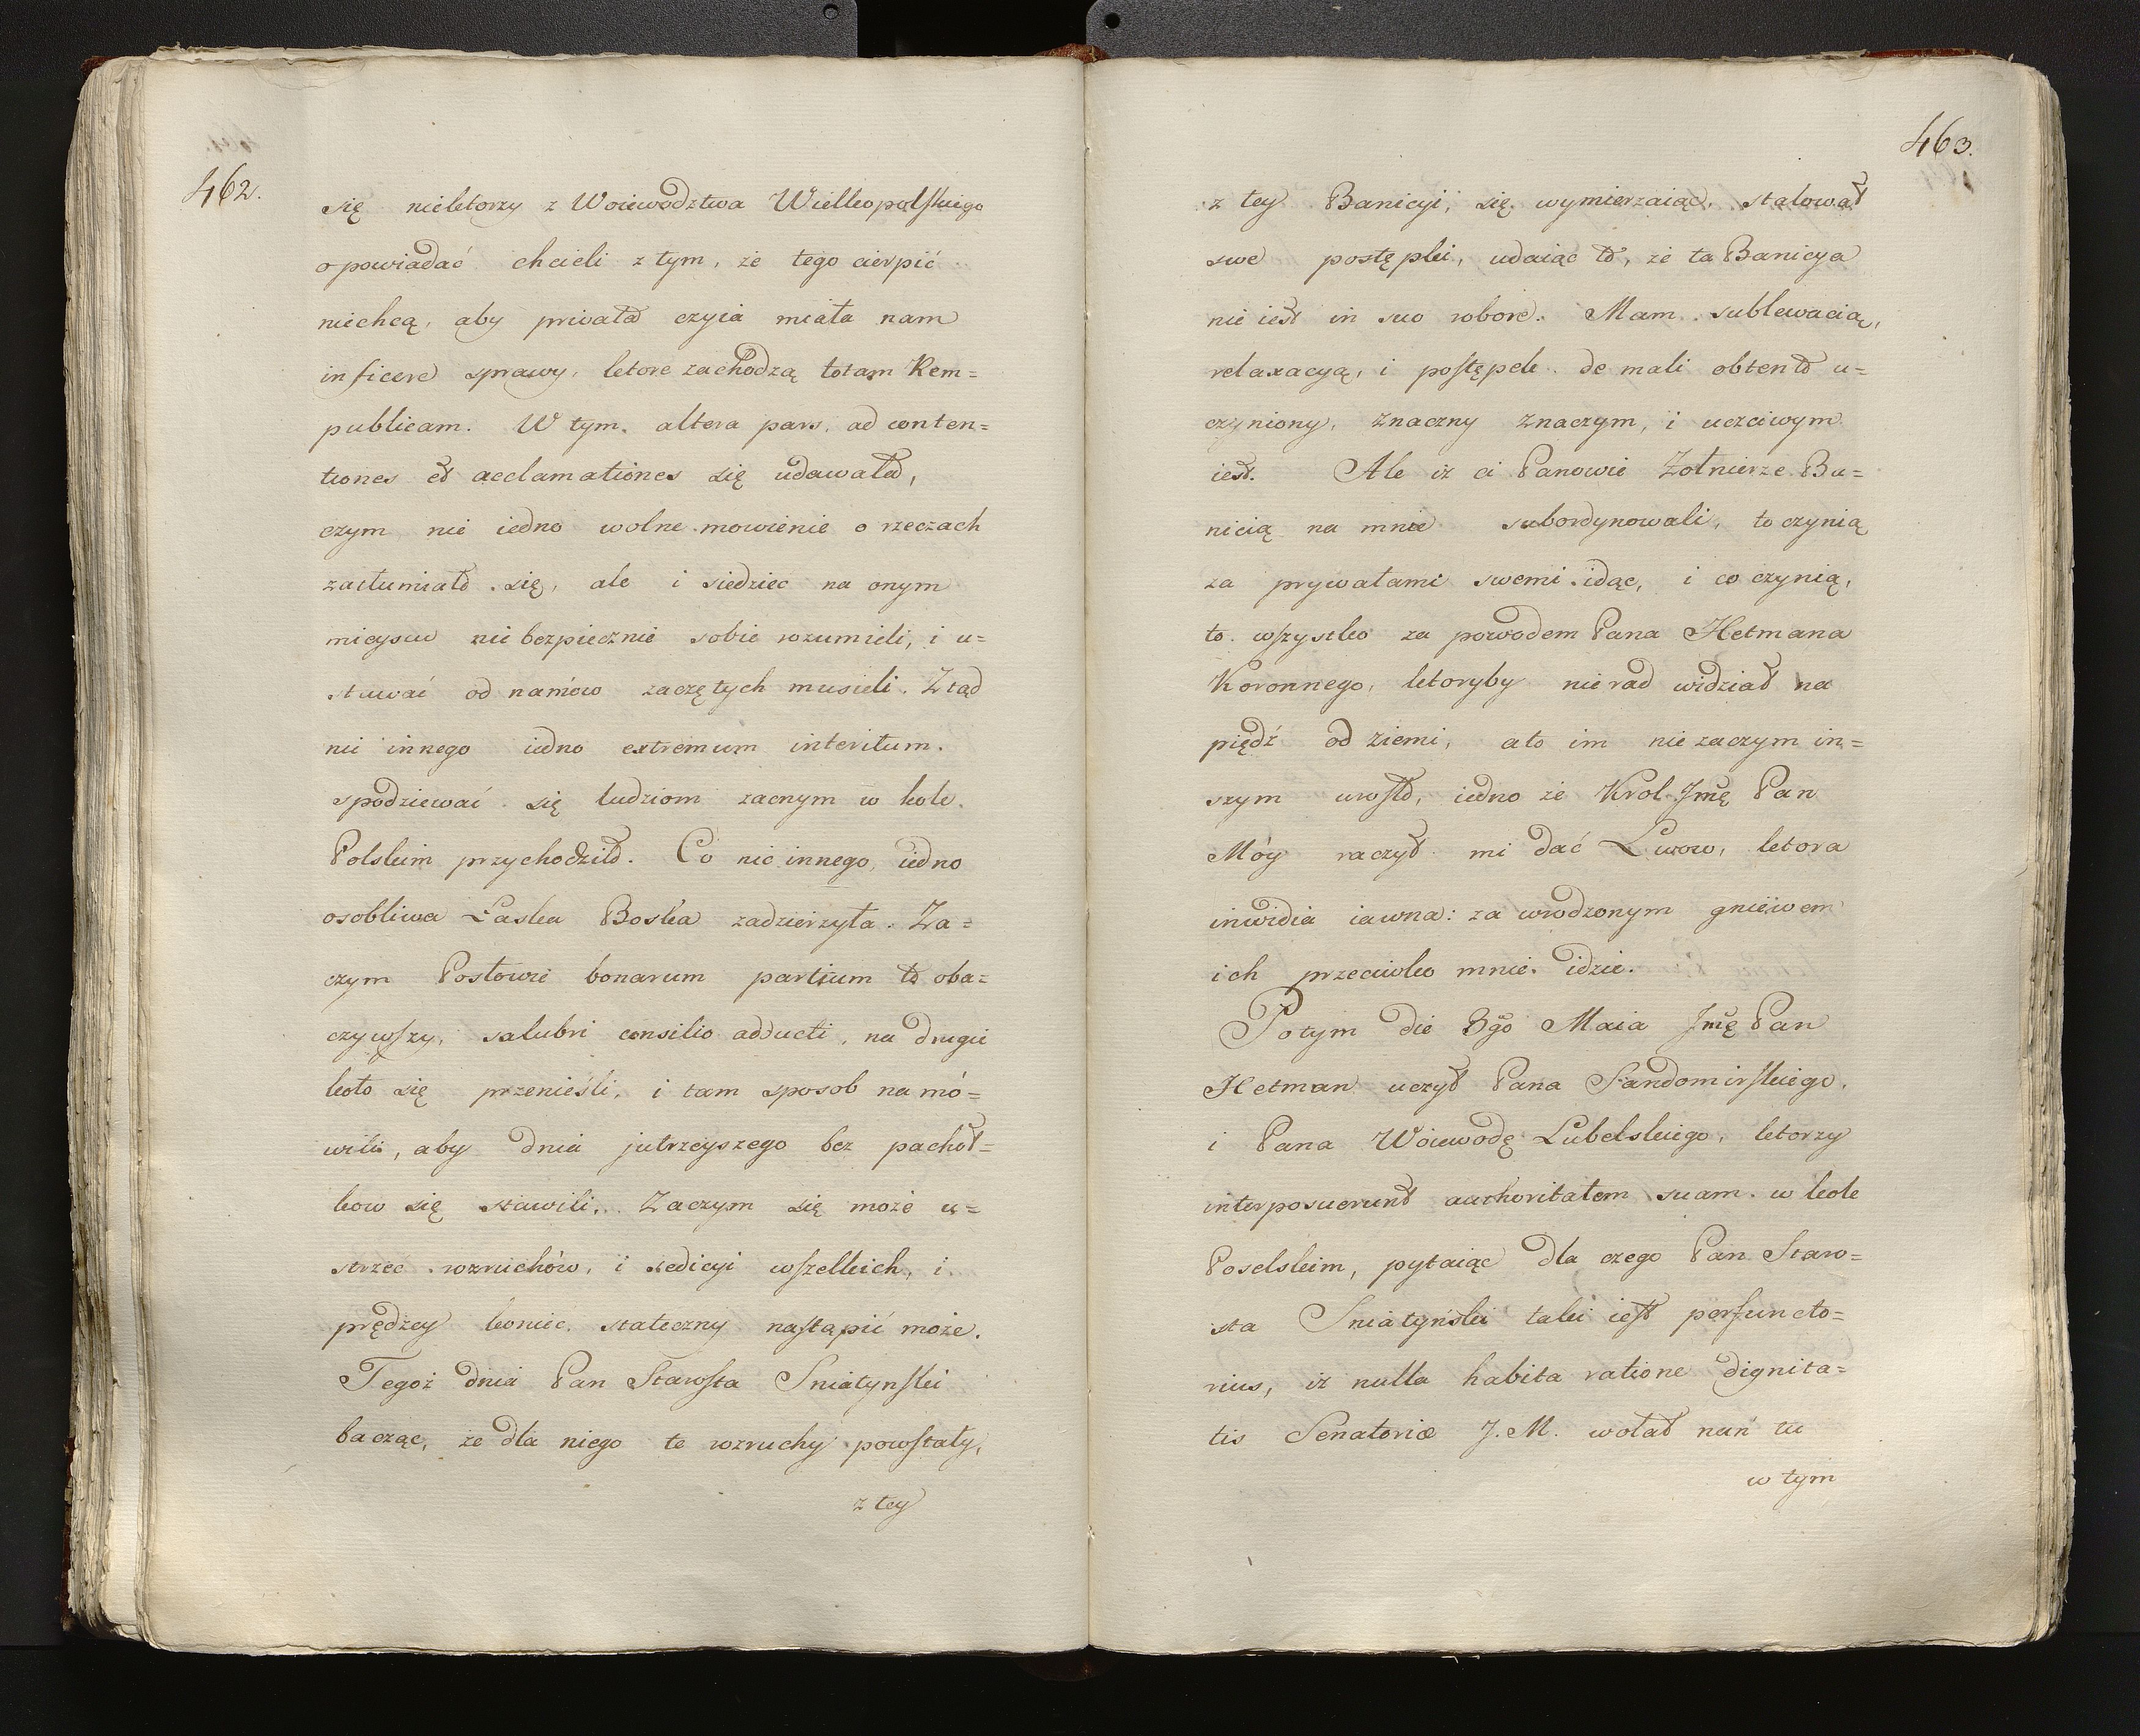 462.
się niektorzy z Woiewodztwa Wielkopolskiego
opowiadać chcieli z tym, że tego cierpić
niechcą, aby privata czyia miała nam
inficere sprawy, ktore zachodzą totam Rem=
publicam. W tym altera pars, ad conten=
tiones et acclamationes się udawała,
czym nie iedno wolne mowienie o rzeczach
zatłumiało się, ale i siedziec na onym
mieyscu nie bezpiecznie sobie rozumieli, i u=
stawać od namów zaczętych musieli. Ztąd
nic innego iedno extremum interitum
spodziewać się ludziom zacnym w kole
Polskim przychodziło. Co nic innego, iedno
osobliwa Łaska Boska zadzierżyła. Za=
czym Posłowie bonarum partium to oba=
czywszy, salubri consilio adducti, na drugie
koło się przenieśli, i tam sposob namó=
wili, aby dnia jutrzeyszego bez pachoł=
kow się stawili. Zaczym się może u=
strzec rozruchów, i sedicyi wszelkich, i
prędzey koniec stateczny nastąpić może.
Tegoż dnia Pan Starosta Sniatynski
bacząc, że dla niego te rozruchy powstały,
z tey
463.
z tey Banicyi, się wymierzaiąc, stalował
swe postępki, udaiąc to, że ta Banicya
nie iest in suo robore. Mam sublewacią,
relaxacyą, i postępek de mali obtento u=
czyniony, znaczny znaczym, i uczciwym
iest. Ale iż ci Panowie Zołnierze Ba=
nicią na mnie subordynowali, to czynią
za prywatami swemi idąc, i co czynią,
to wszystko za powodem Pana Hetmana
Koronnego, ktoryby nierad widział na
piędź od ziemi, ato im nie zaczym in=
szym urosło, iedno że Krol Jmę Pan
Móy raczył mi dać Lwow, ktora
inwidia iawna: za wrodzonym gniewem
ich przeciwko mnie idzie.
Potym die 3go Maia Jmę Pan
Hetman uczył Pana Sandomirskiego,
i Pana Woiewodę Lubelskiego, ktorzy
interposuerunt authoritatem suam w kole
Poselskim, pytaiąc dla czego Pan Staro=
sta Sniatyński taki iest perfuncto=
rius, iż nulla habita ratione dignita=
tis Senatoriæ J. M. wołał nań tu
w tym